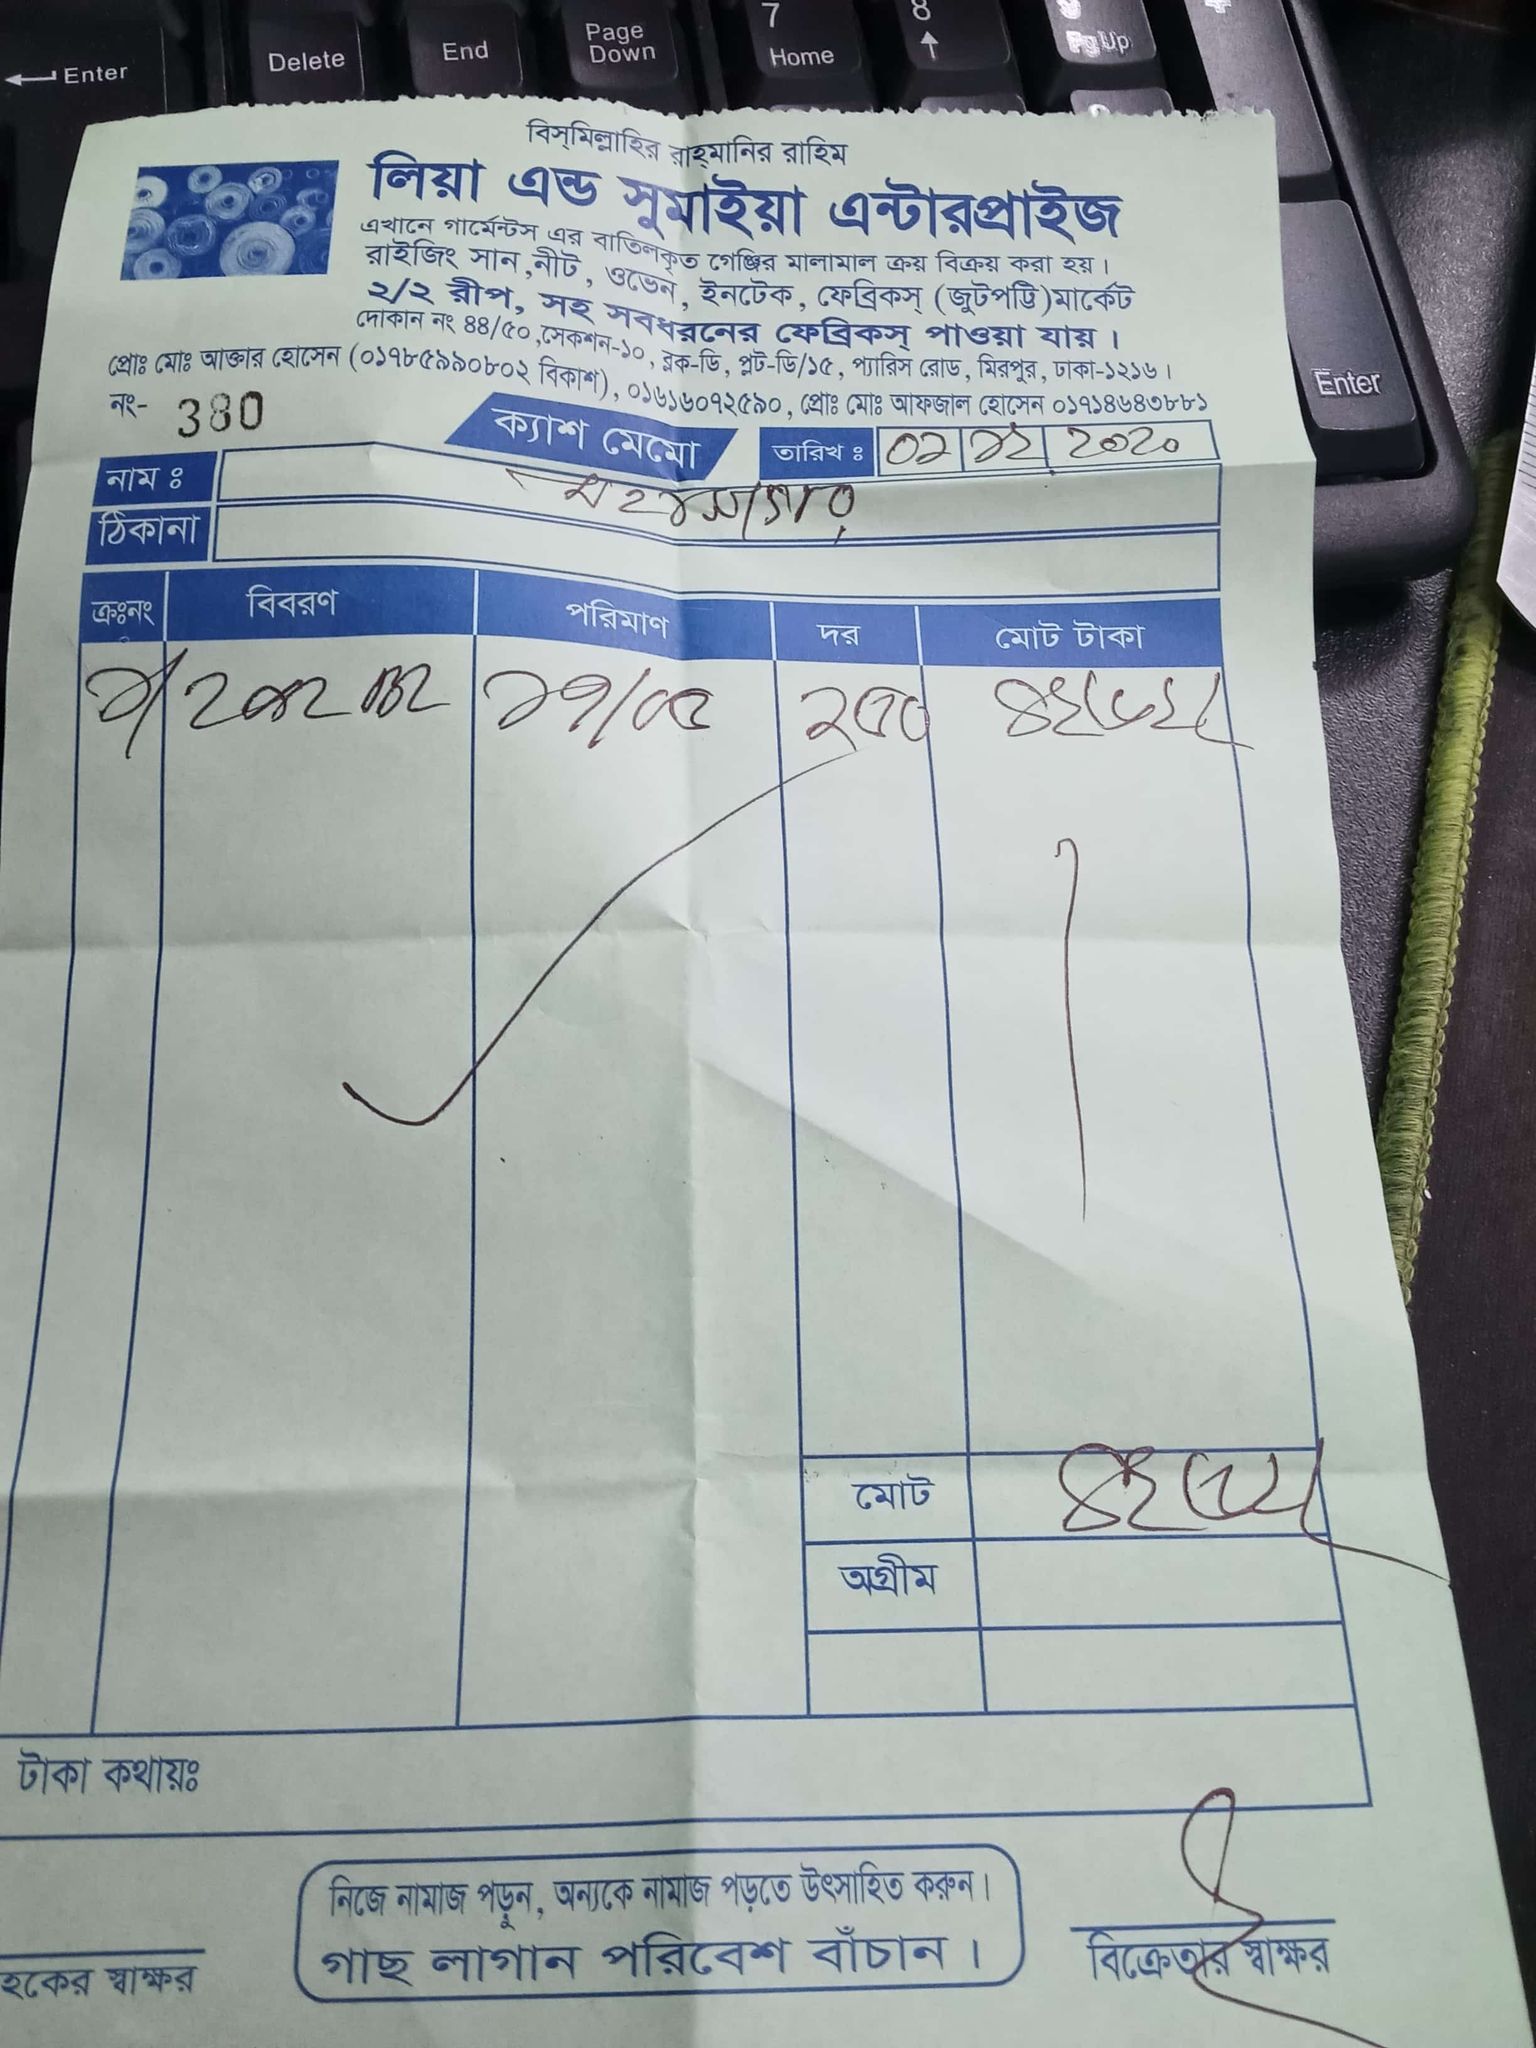 Enter
Delete
End
Page Down
7 Home
8
PgUp
Enter
বিস্‌মিল্লাহির রাহ্‌মানির রাহিম
লিয়া এন্ড সুমাইয়া এন্টারপ্রাইজ
এখানে গার্মেন্টস এর বাতিলকৃত গেঞ্জির মালামাল ক্রয় বিক্রয় করা হয়।
রাইজিং সান, নীট, ওভেন, ইনটেক, ফেব্রিকস্ (জুটপট্টি) মার্কেট
২/২ রীপ, সহ সবধরনের ফেব্রিকস্ পাওয়া যায়।
দোকান নং ৪৪/৫০, সেকশন-১০, ব্লক-ডি, প্লট-ডি/১৫, প্যারিস রোড, মিরপুর, ঢাকা-১২১৬।
প্রোঃ মোঃ আক্তার হোসেন (০১৭৮৫৯৯০৮০২ বিকাশ), ০১৬১৬০৭২৫৯০, প্রোঃ মোঃ আফজাল হোসেন ০১৭১৪৬৪৩৮৮১
নং- 380
ক্যাশ মেমো
তারিখ ঃ ০২ ১২ ২০২০
নাম ঃ
ঠিকানা
ক্রঃনং বিবরণ পরিমাণ দর মোট টাকা
১/ ১৭/০৫ ২৫০
মোট
অগ্রীম
টাকা কথায়ঃ
নিজে নামাজ পড়ুন, অন্যকে নামাজ পড়তে উৎসাহিত করুন।
গাছ লাগান পরিবেশ বাঁচান।
হকের স্বাক্ষর
বিক্রেতার স্বাক্ষর